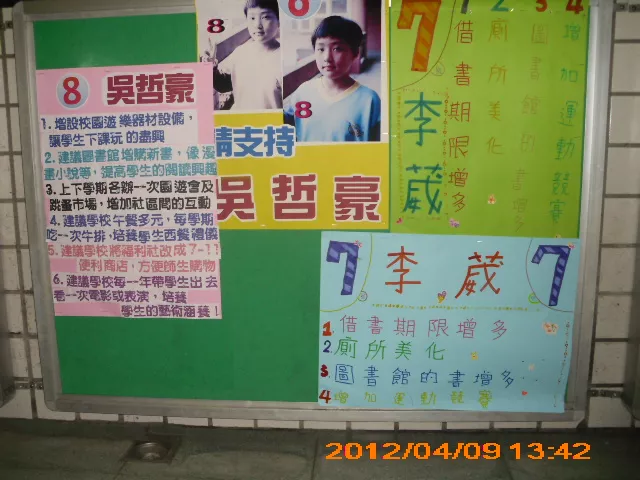 8 吳哲豪
1. 增設校園遊樂器材設備，
讓學生下課玩的盡興
2. 建議圖書館增購新書，像漫
畫小說等，提高學生的閱讀興趣
3. 上下學期各辦一次園遊會及
跳蚤市場，增加社區間的互動
4. 建議學校午餐多元，每學期
吃一次牛排，培養學生西餐禮儀
5. 建議學校將福利社改成7-11
便利商店，方便師生購物
6. 建議學校每一年帶學生出去
看一次電影或表演，培養
學生的藝術涵養！
8
8
8
請支持
吳哲豪
7 李葳
1 借書期限增多
2 廁所美化
3 圖書館的書增多
4 增加運動競賽
7 李葳 7
1. 借書期限增多
2. 廁所美化
3. 圖書館的書增多
4. 增加運動競賽
2012/04/09 13:42